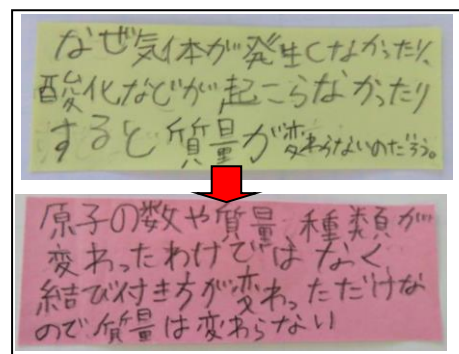 なぜ気体が発生しなかったり、
酸化などが起こらなかったり
すると質量が変わらないのだろう。
原子の数や質量、種類が
変わったわけではなく、
結び付き方が変わっただけな
ので質量は変わらない